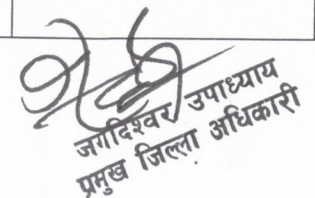 जगदिश्वर उपाध्याय
प्रमुख जिल्ला अधिकारी